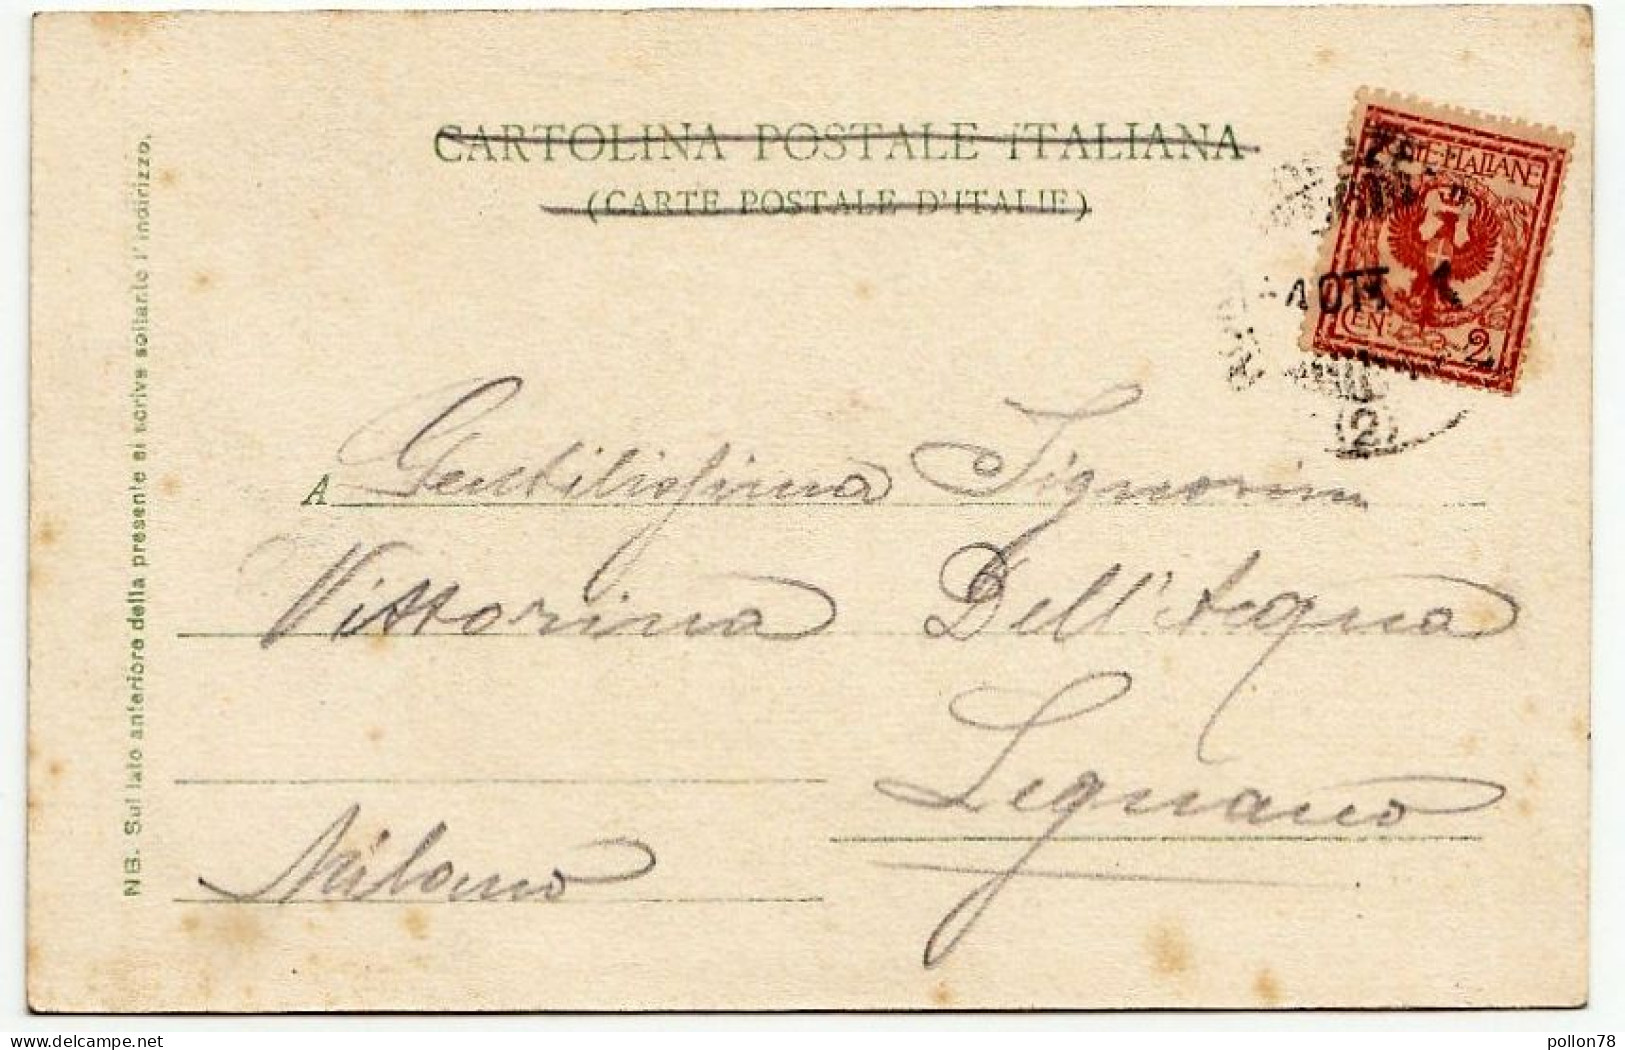 CARTOLINA POSTALE ITALIANA
(CARTE POSTALE D'ITALIE)
POSTE ITALIANE
CEN: 2
(2)
A Gentilissima Signorina
Vittorina Dell'Acqua
Legnano
Milano
NB. Sul lato anteriore della presente si scrive soltanto l'indirizzo.
delcampe.net
pollon78